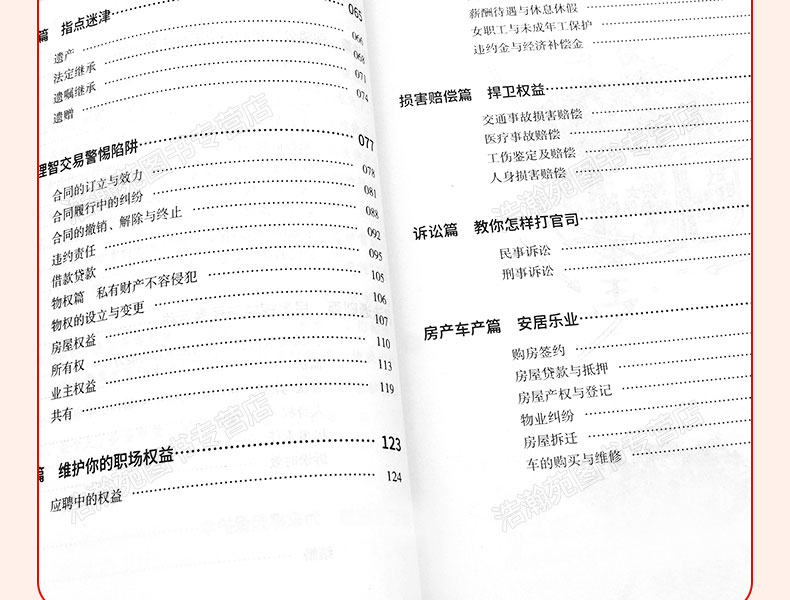 篇 指点迷津 065
遗产 066
法定继承 068
遗嘱继承 071
遗赠 074
理智交易警惕陷阱 077
合同的订立与效力 078
合同履行中的纠纷 081
合同的撤销、解除与终止 088
违约责任 092
借款贷款 095
物权篇 私有财产不容侵犯 105
物权的设立与变更 106
房屋权益 107
所有权 110
业主权益 113
共有 119
篇 维护你的职场权益 123
应聘中的权益 124
薪酬待遇与休息休假
女职工与未成年工保护
违约金与经济补偿金
损害赔偿篇 捍卫权益
交通事故损害赔偿
医疗事故赔偿
工伤鉴定及赔偿
人身损害赔偿
诉讼篇 教你怎样打官司
民事诉讼
刑事诉讼
房产车产篇 安居乐业
购房签约
房屋贷款与抵押
房屋产权与登记
物业纠纷
房屋拆迁
车的购买与维修